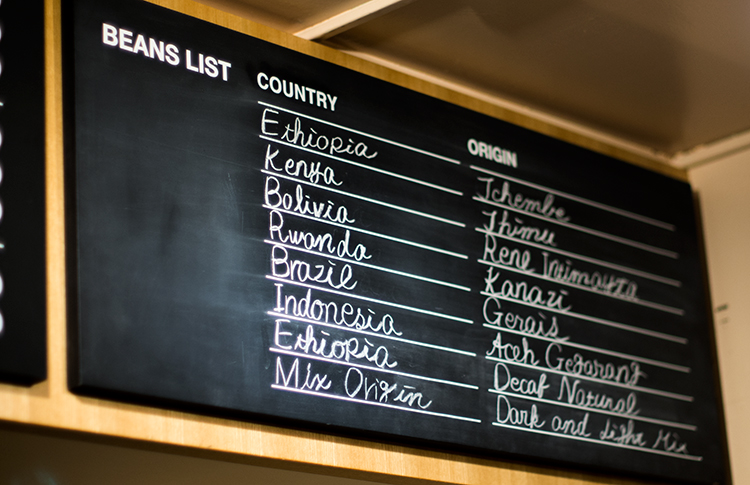 BEANS LIST
COUNTRY ORIGIN
Ethiopia Tchembe
Kenya Thimu
Bolivia Rene Intimayta
Rwanda Kanazi
Brazil Gerais
Indonesia Aceh Gegarang
Ethiopia Decaf Natural
Mix Origin Dark and Light Mix